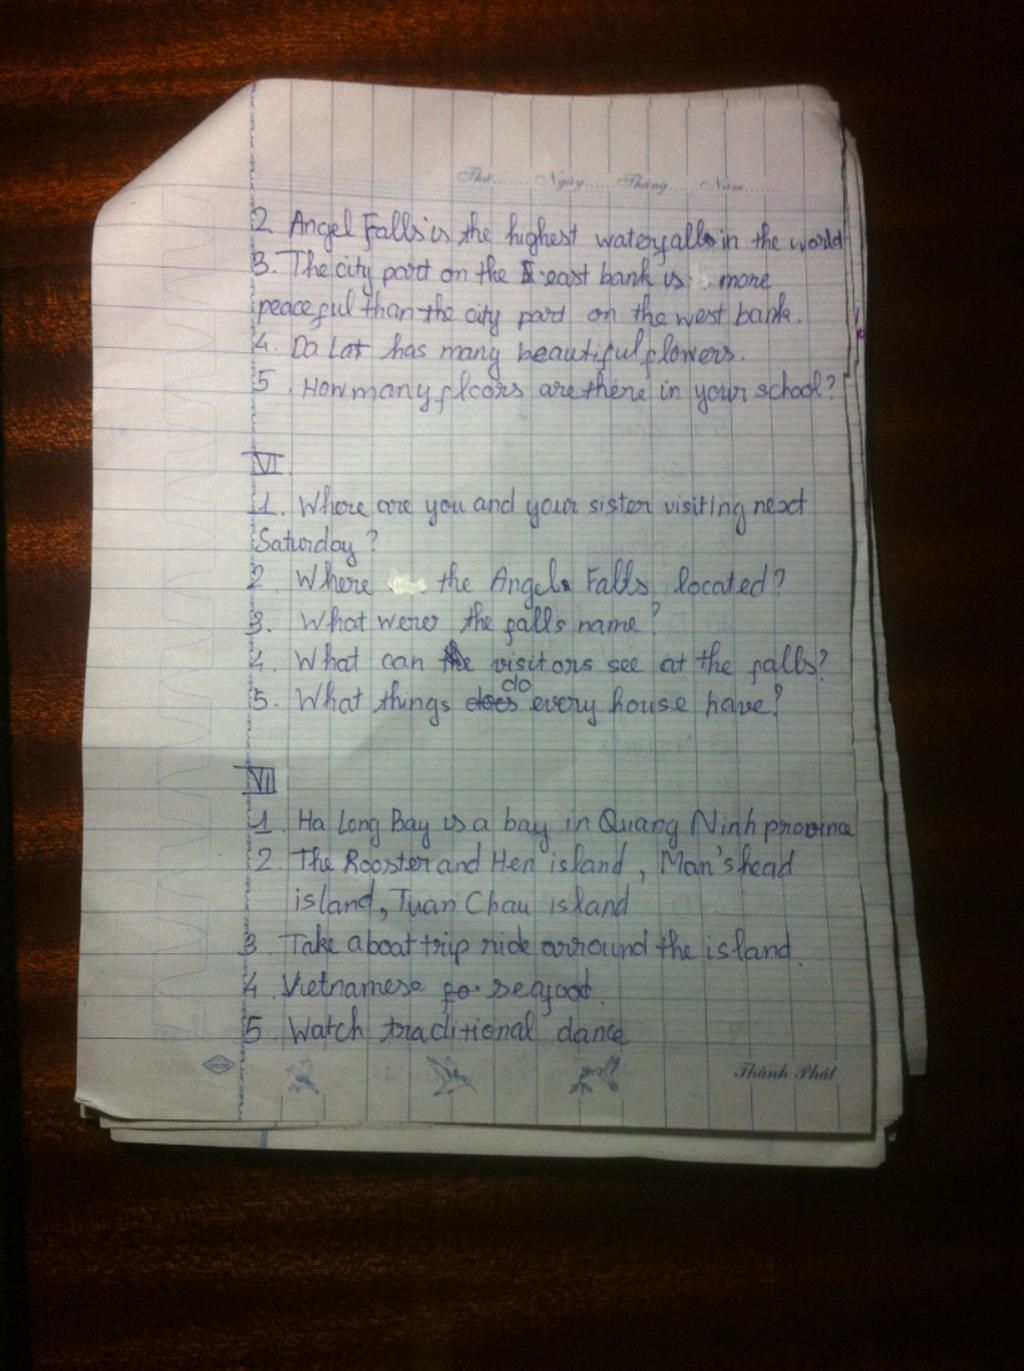 Thứ........Ngày......Tháng......Năm........
2 Angel Falls is the highest waterfalls in the world
3. The city part on the east bank is more
peaceful than the city part on the west bank.
4. Da Lat has many beautiful flowers.
5. How many floors are there in your school?
VI.
1. Where are you and your sister visiting next
Saturday?
2. Where the Angels Falls located?
3. What were the falls name?
4. What can the visitors see at the falls?
5. What things does do every house have?
VII
1. Ha Long Bay is a bay in Quang Ninh province
2. The Rooster and Hen island, Man's head
island, Tuan Chau island
3 Take a boat trip ride arround the island.
4. Vietnamese fo seafood.
5. Watch traditional dance
Thành Phát